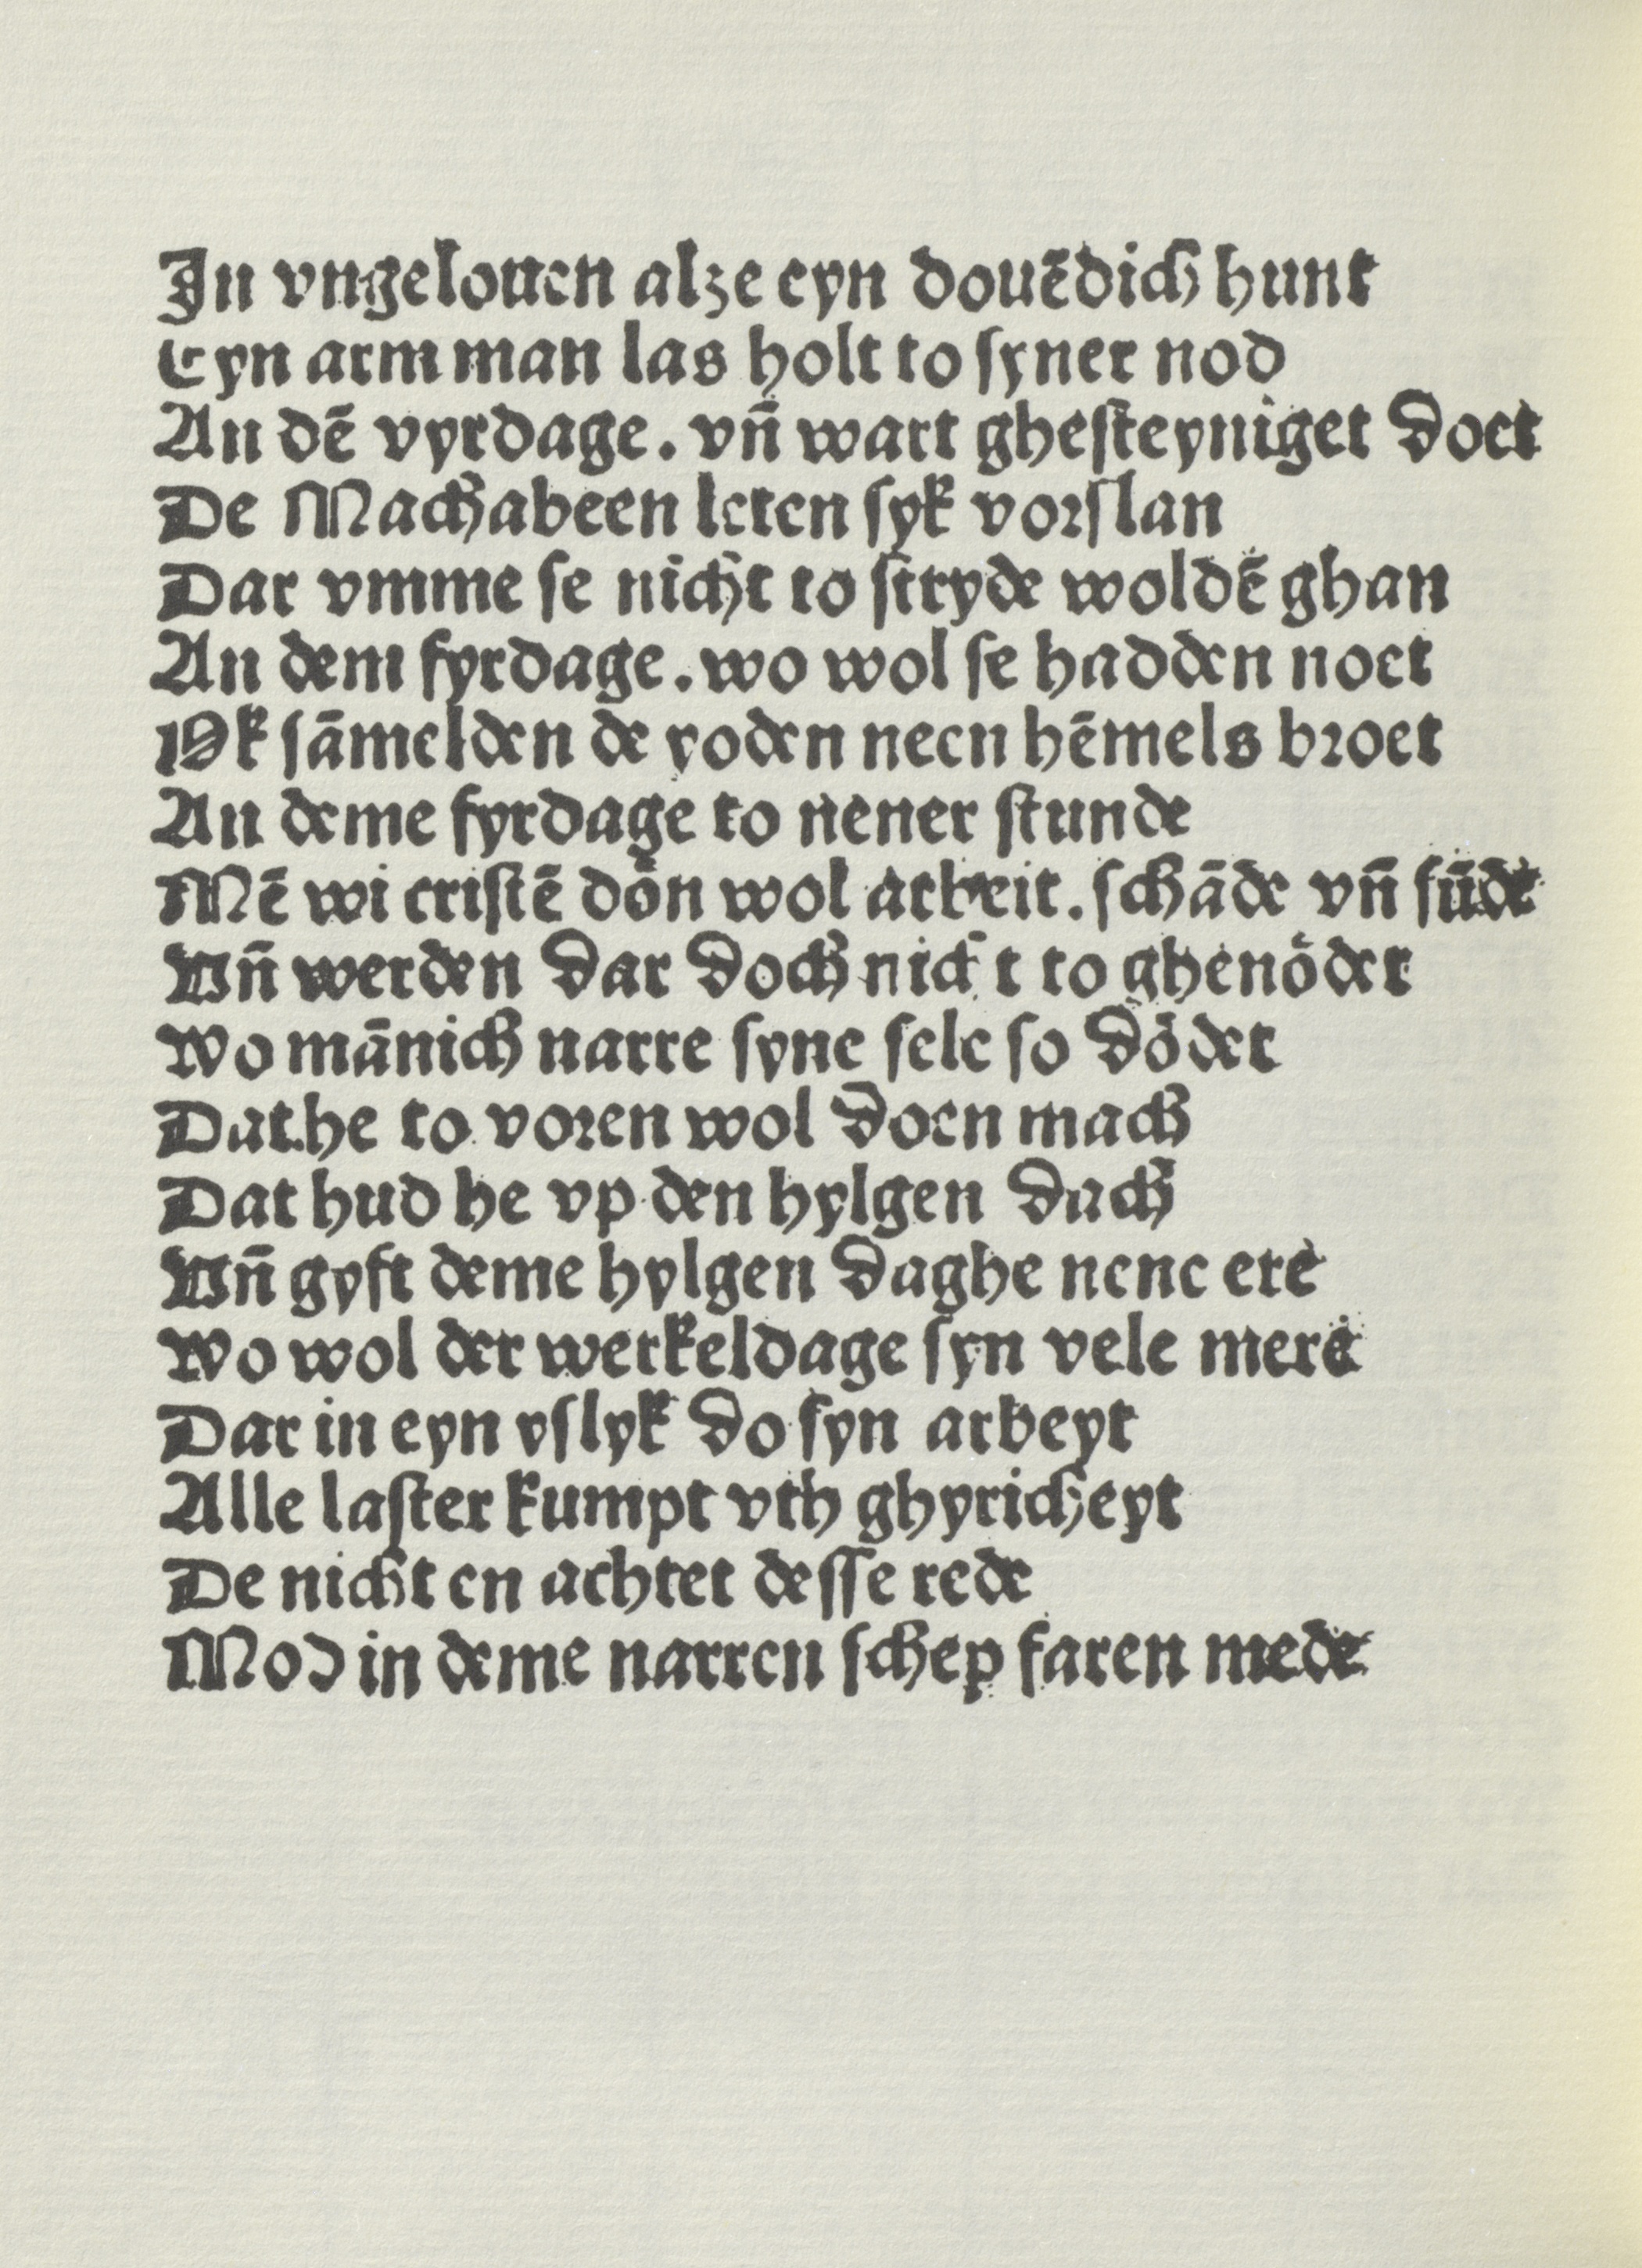 In vngelouen alze eyn douẽdich hunt
Eyn arm man las holt to syner nod
An dẽ vyrdage. vñ wart ghesteyniget doet
De Machabeen leten syk vorslan
Dar vmme se nicht to stryde woldẽ ghan
An dem fyrdage. wo wol se hadden noet
Ok sãmelden de yoden neen hẽmels broet
An deme fyrdage to nener stunde
Mẽ wi cristẽ dõn wol arbeit. schãde vñ sũde
Vñ werden dar doch nicht to ghenödet
Wo mãnich narre syne sele so dödet
Dat he to voren wol doen mach
Dat hud he vp den hylgen dach
Vñ gyft deme hylgen daghe nene ere
Wo wol der werkeldage syn vele mere
Dar in eyn yslyk do syn arbeyt
Alle laster kumpt vth ghyricheyt
De nicht en achtet desse rede
Mod in deme narren schep faren mede